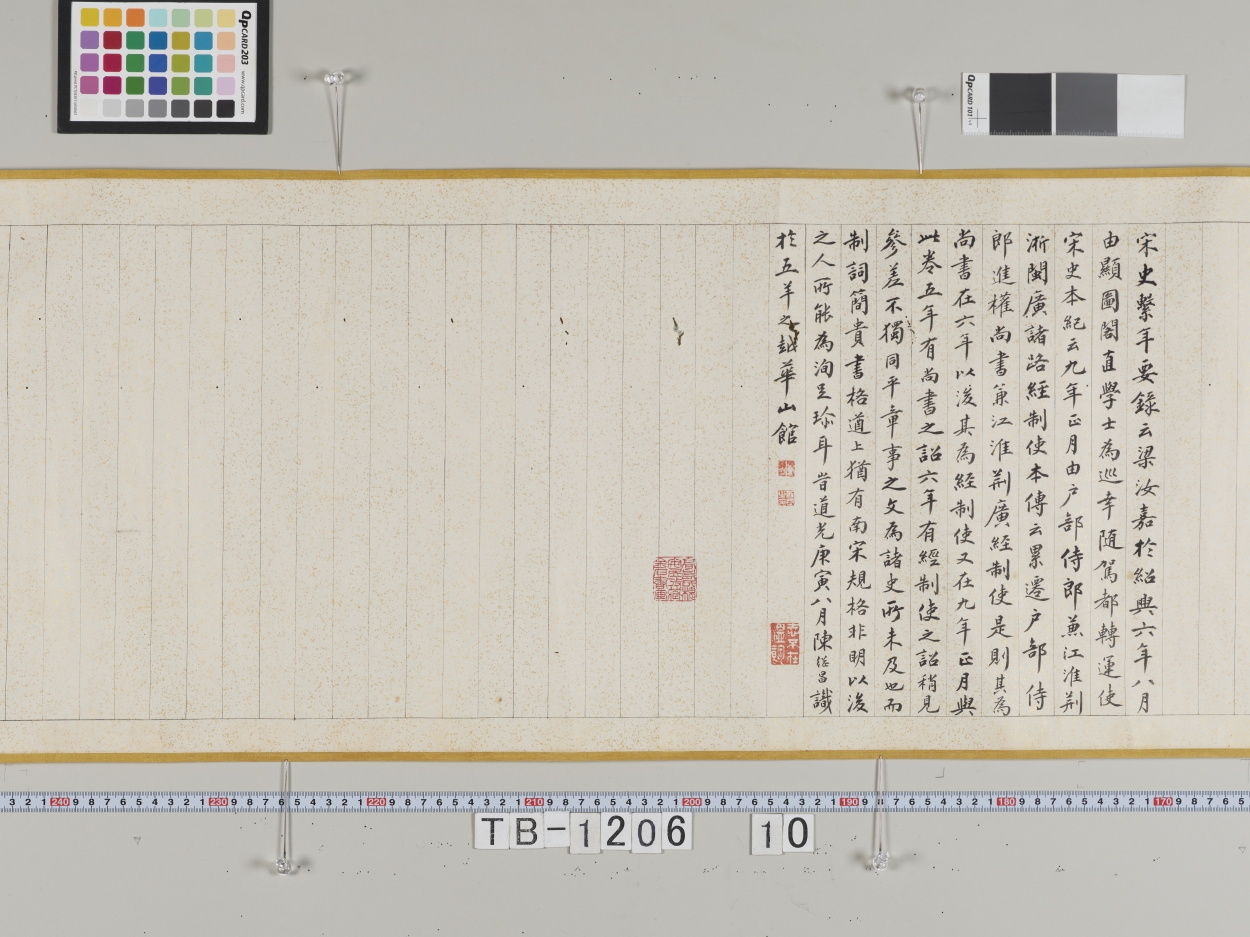 宋史繫年要錄云梁汝嘉於紹興六年八月
由顯圖閣直學士為巡幸隨駕都轉運使
宋史本紀云九年正月由户部侍郎兼江淮荆
淅閩廣諸路經制使本傳云累遷户部侍
郎進權尚書兼江淮荆廣經制使是則其為
尚書在六年以後其為經制使又在九年正月與
此卷五年有尚書之詔六年有經制使之詔稍見
參差不獨同平章事之文為諸史所未及也而
制詞簡貴書格遒上猶有南宋規格非明以後
之人所能為洵足珍耳旹道光庚寅八月陳繼昌識
於五羊之越華山館
QPCARD 203
www.qpcard.com
QPCARD 101
3 2 1 240 9 8 7 6 5 4 3 2 1 230 9 8 7 6 5 4 3 2 1 220 9 8 7 6 5 4 3 2 1 210 9 8 7 6 5 4 3 2 1 200 9 8 7 6 5 4 3 2 1 190 9 8 7 6 5 4 3 2 1 180 9 8 7 6 5 4 3 2 1 170 9 8 7 6 5
TB-1206 10